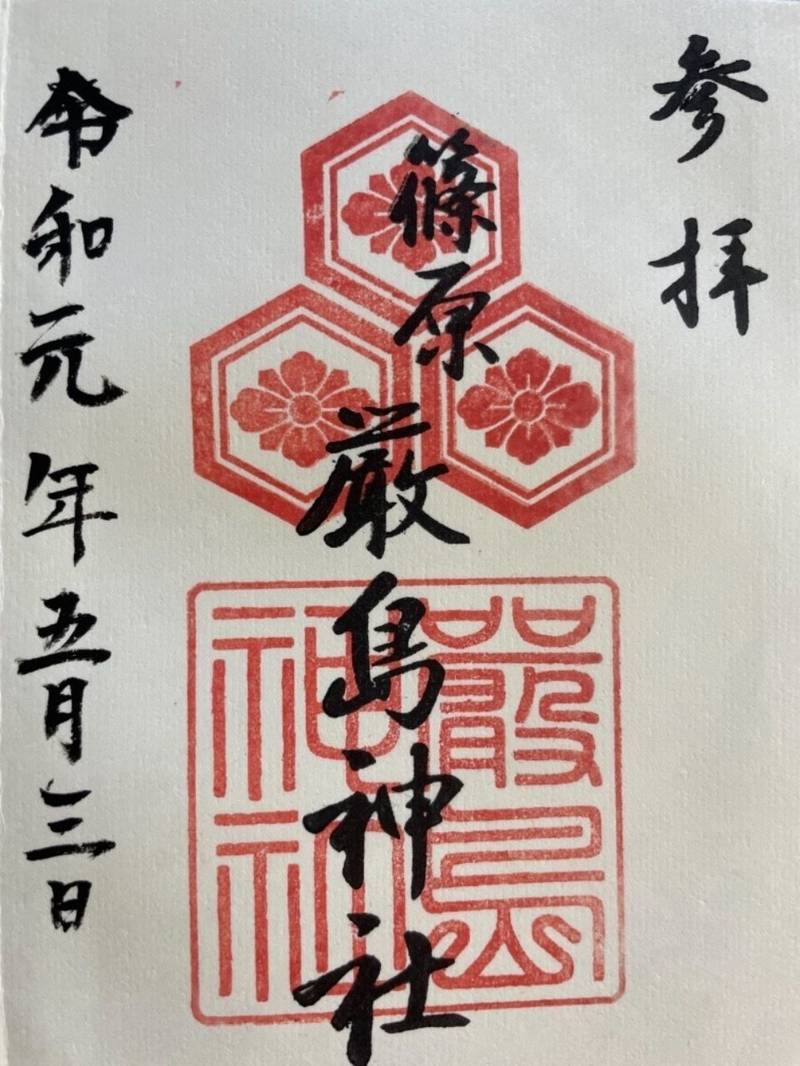 参拝
篠原
厳島神社
令和元年五月三日
嚴島
神社